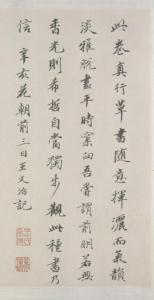 此卷真行草書隨意揮灑而氣韻
淡雅脫盡平時窠臼吾嘗謂前明若無
香光則希哲自當獨步觀此種書乃
信 辛亥花朝前三日王文治記